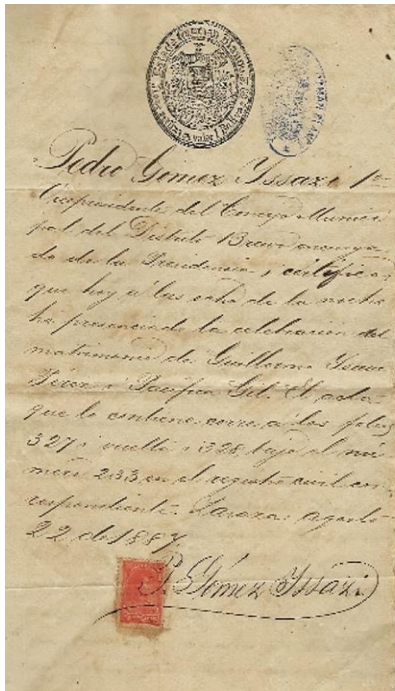 Pedro Gómez Yssazi 1er
Vicepresidente del Concejo Munici
pal del Distrito Bravo encarga
do de la Presidencia, certifica:
que hoy a las ocho de la noche
ha presenciado la celebración del
matrimonio de Guillermo
Pérez i Pacífica Gil. El acta
que lo contiene corre a los folios
327 i vuelta i 328 bajo el nú
mero 233 en el registro civil cor
respondiente. agosto
22 de 1887.
P. Gómez Yssazi